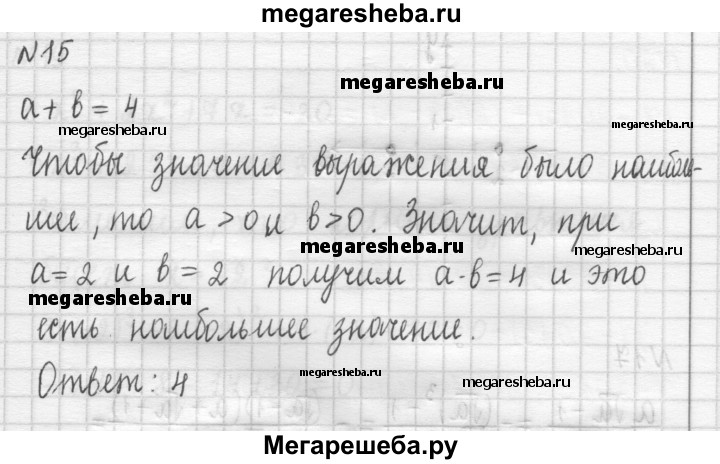 megaresheba.ru
N15
megaresheba.ru
a + b = 4
megaresheba.ru
megaresheba.ru
Чтобы значение выражения было наиболь-
шее, то a > 0 и b > 0. Значит, при
megaresheba.ru
a = 2 и b = 2 получим a·b = 4 и это
megaresheba.ru
есть наибольшее значение.
Ответ: 4
megaresheba.ru
megaresheba.ru
Мегарешеба.ру